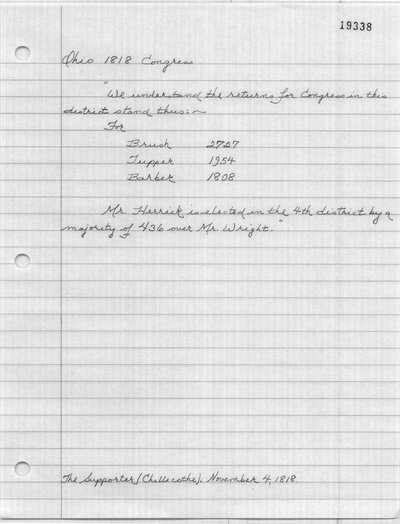 19338
Ohio 1818 Congress
"We understand the returns for Congress in this
district stand thus:~
For
Brush 2727
Tupper 1954
Barber 1808
Mr. Herrick is elected in the 4th district by a
majority of 436 over Mr. Wright."
The Supporter (Chillicothe). November 4, 1818.